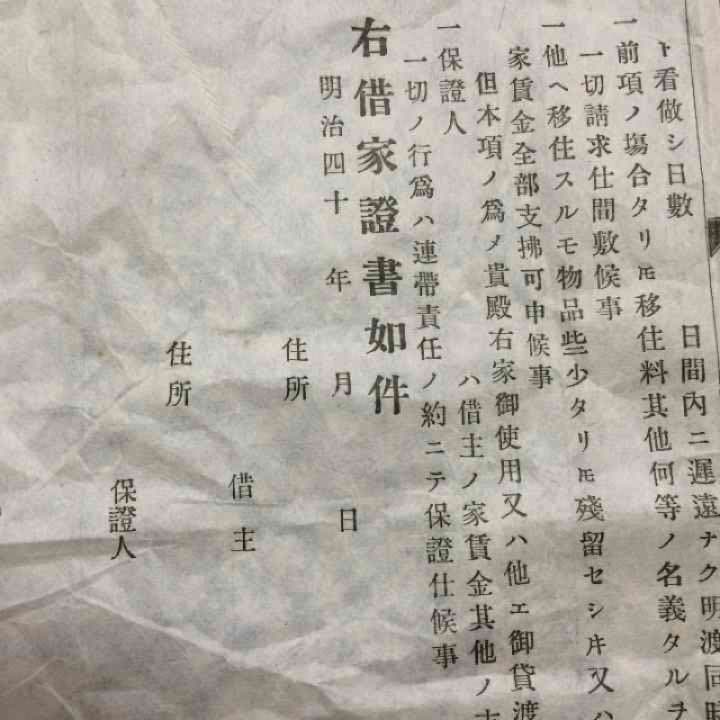 ト看做シ日數　　日間内ニ遲遠ナク明渡同時
一前項ノ塲合タリㇳモ移住料其他何等ノ名義タルヲ
一切請求仕間敷候事
一他ヘ移住スルモ物品些少タリㇳモ殘留セシキ又ハ
家賃金全部支拂可申候事
但本項ノ爲メ貴殿右家御使用又ハ他エ御貸渡
一保證人　　ハ借主ノ家賃金其他ノ
一切ノ行爲ハ連帶責任ノ約ニテ保證仕候事
右借家證書如件
明治四十　年　月　日
住所
借主
住所
保證人